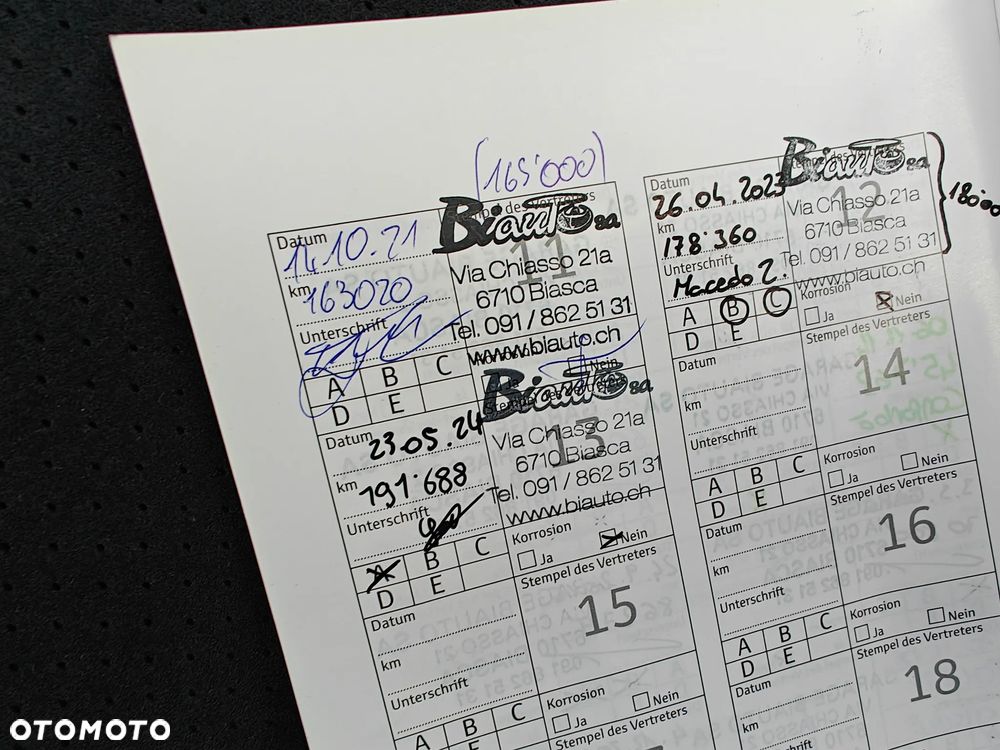 (165'000)
Datum 14.10.21
km 163020
Unterschrift
Stempel des Vertreters
11
Biauto sa
Via Chiasso 21a
6710 Biasca
Tel. 091 / 862 51 31
www.biauto.ch
A B C
D E
Nein
Datum 26.04.2023
km 178'360
Unterschrift
Macedo Z.
Stempel des Vertreters
12
Biauto sa
Via Chiasso 21a
6710 Biasca
Tel. 091 / 862 51 31
www.biauto.ch
A B C
D E
Korrosion
Ja Nein
Datum 23.05.24
km 191'688
Unterschrift
Stempel des Vertreters
13
Biauto sa
Via Chiasso 21a
6710 Biasca
Tel. 091 / 862 51 31
www.biauto.ch
A B C
D E
Korrosion
Ja Nein
Datum
km
Unterschrift
Stempel des Vertreters
14
A B C
D E
Korrosion
Ja Nein
Datum
km
Unterschrift
Stempel des Vertreters
15
A B C
D E
Korrosion
Ja Nein
Datum
km
Unterschrift
Stempel des Vertreters
16
A B C
D E
Korrosion
Ja Nein
17
Datum
km
Unterschrift
Stempel des Vertreters
18
OTOMOTO